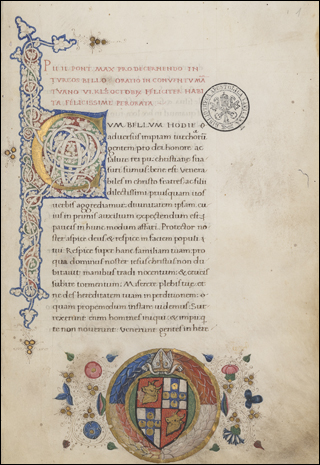 PII II PONT MAX PRO DECERNENDO IN
TVRCOS BELLO ORATIO IN CONVENTV MA
TVANO VI KLS OCTOBR FELICITER HABI
TA FELICISSIME PERORATA
CVM BELLVM HODIE
adversus impiam turchorum
gentem pro dei honore ac
salute rei pu christianae
turi sumus bene est venera
biles in christo fratres ac filii
dilectissimi priusquam tot
verbis aggrediamur divinitatem ipsam cu
ius in primis auxilium expectendum est
paucis in hunc modum affari Protector no
ster aspice deus et respice in faciem populi
tui Respice super hanc familiam tuam pro
qua dominus noster iesus christus non du
bitavit manibus tradi nocentum et crucis
subire tormentum Miserere plebis tuae et
ne des hereditatem tuam in perditionem
quam propemodum instam videmus Sur
rexerunt enim homines iniqui et impii
te non noverunt venerunt gentes in here